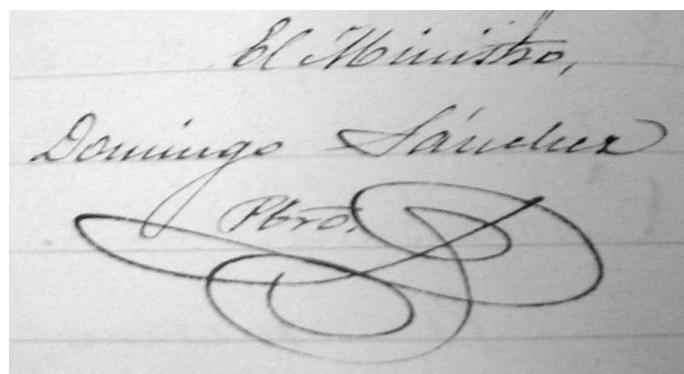 El Ministro,
Domingo Sánchez
Pbro.